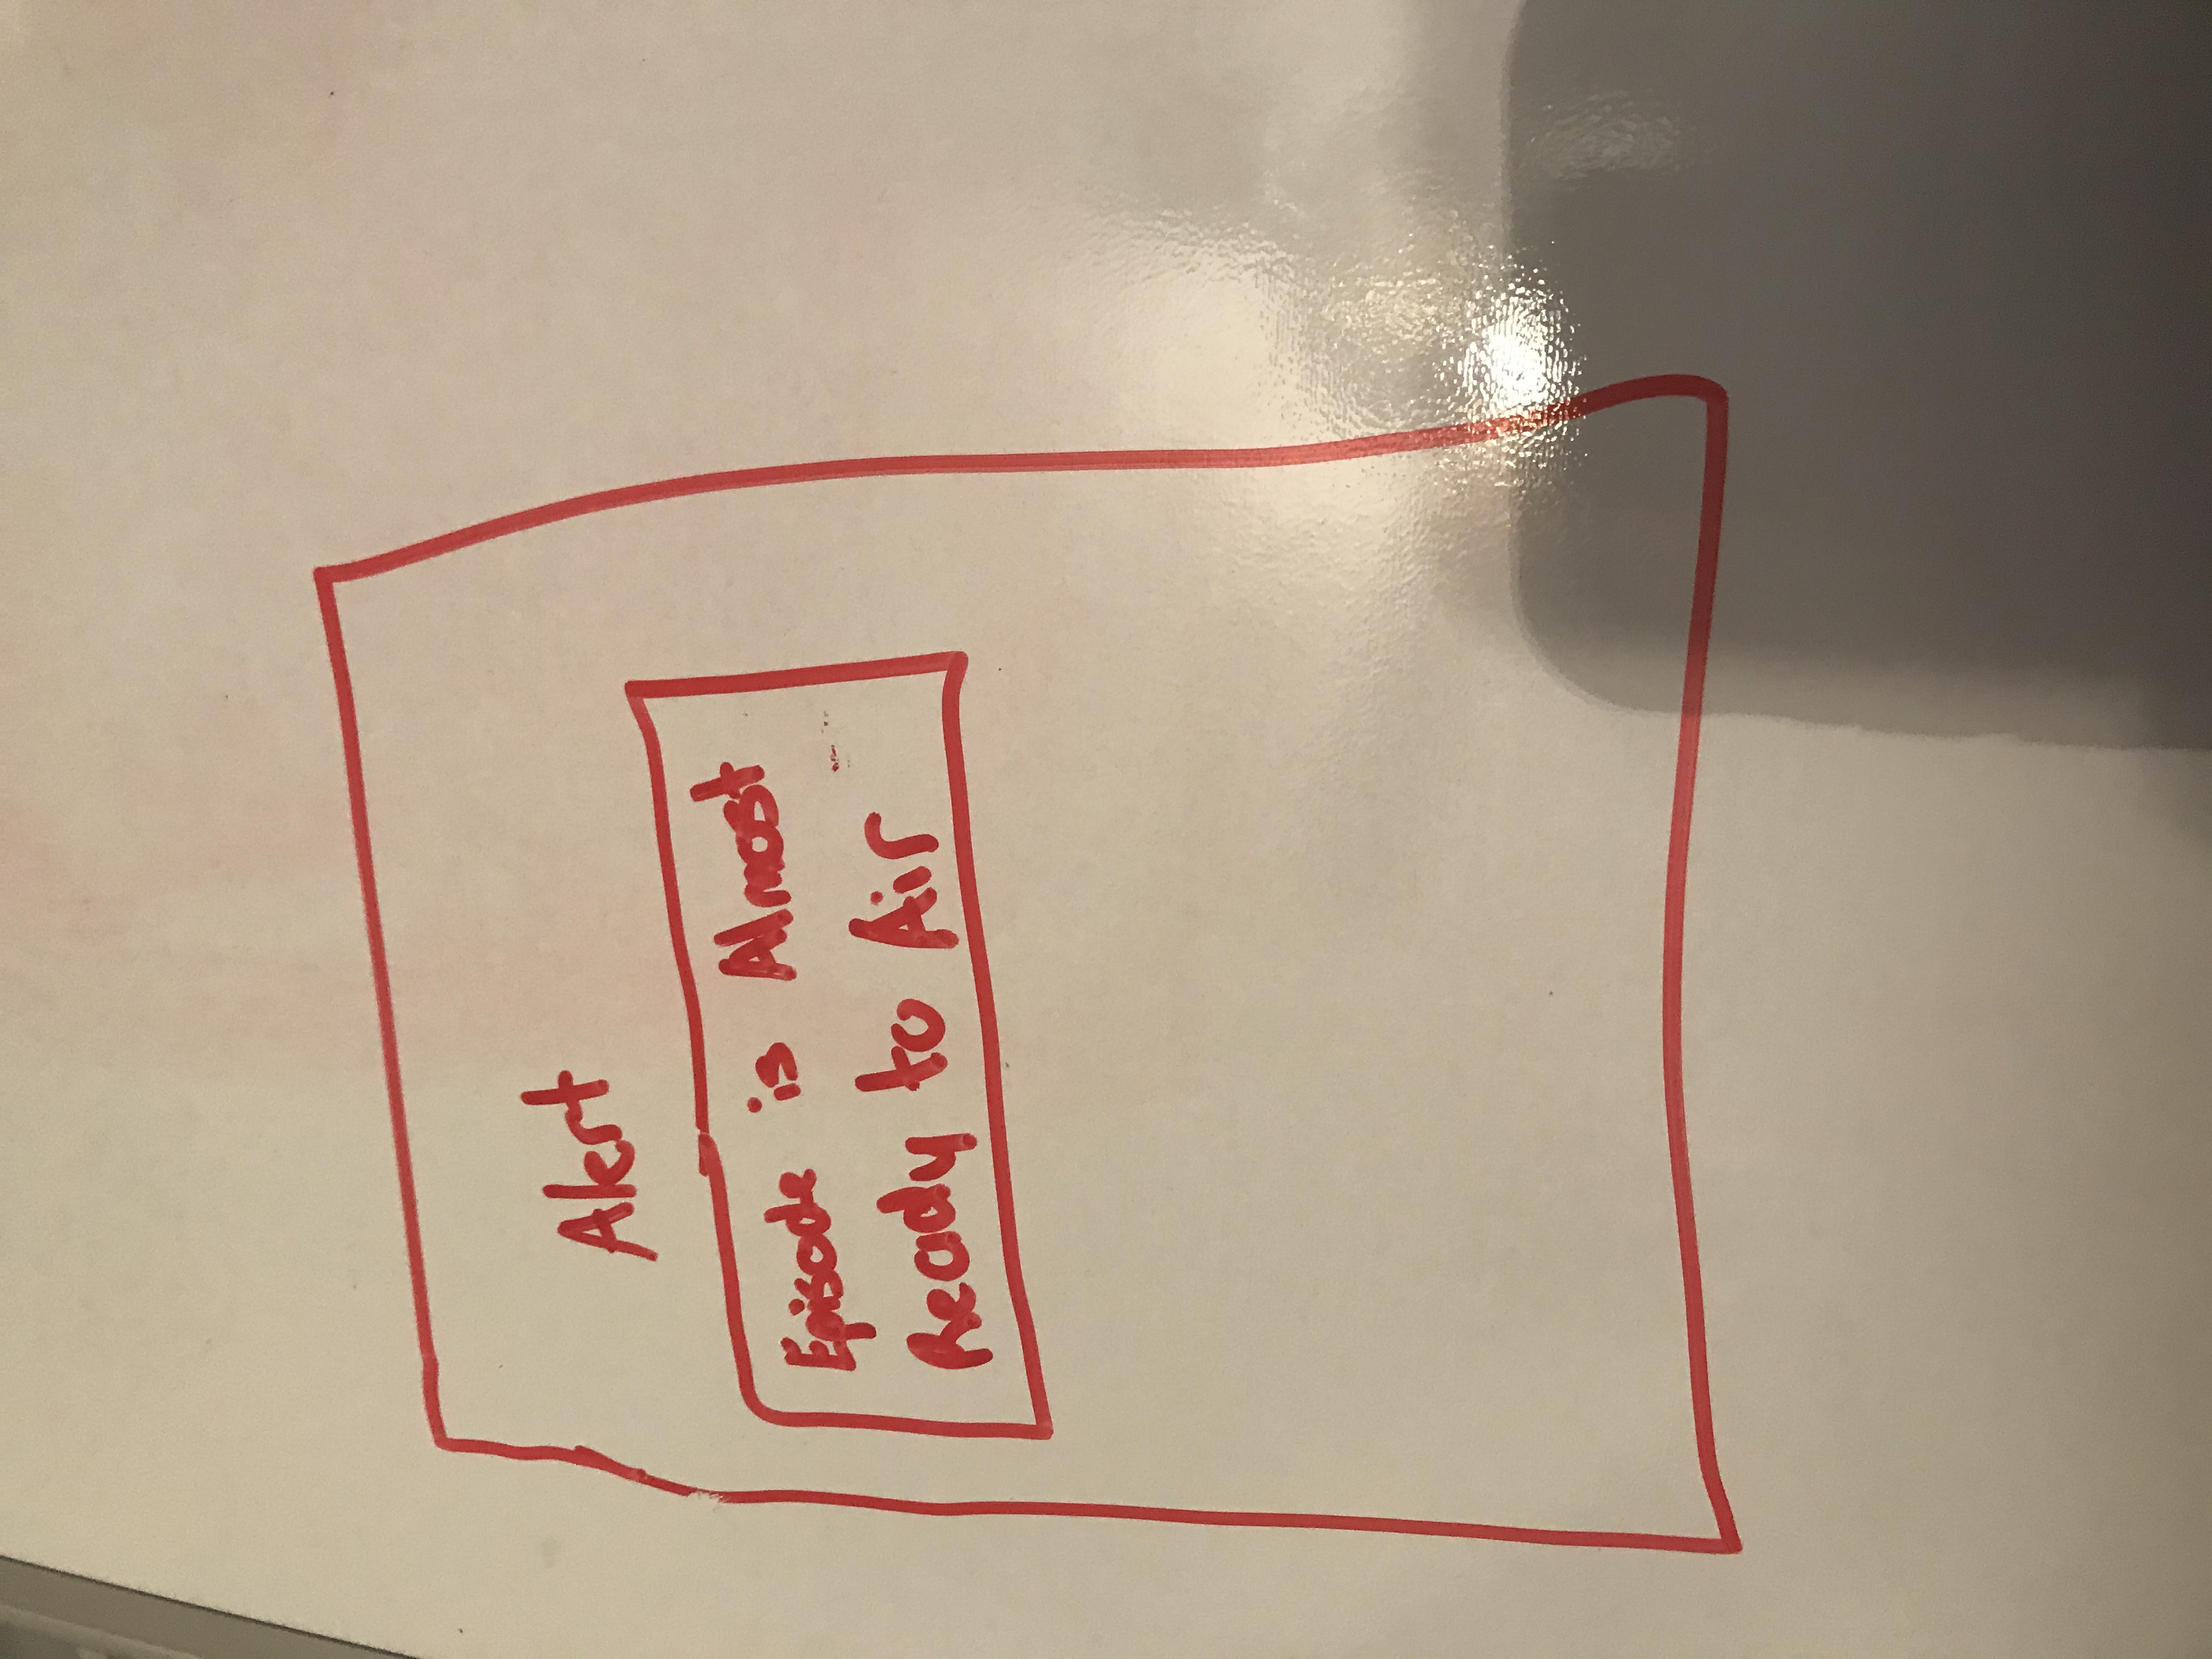 Alert
Episode is Almost
Ready to Air